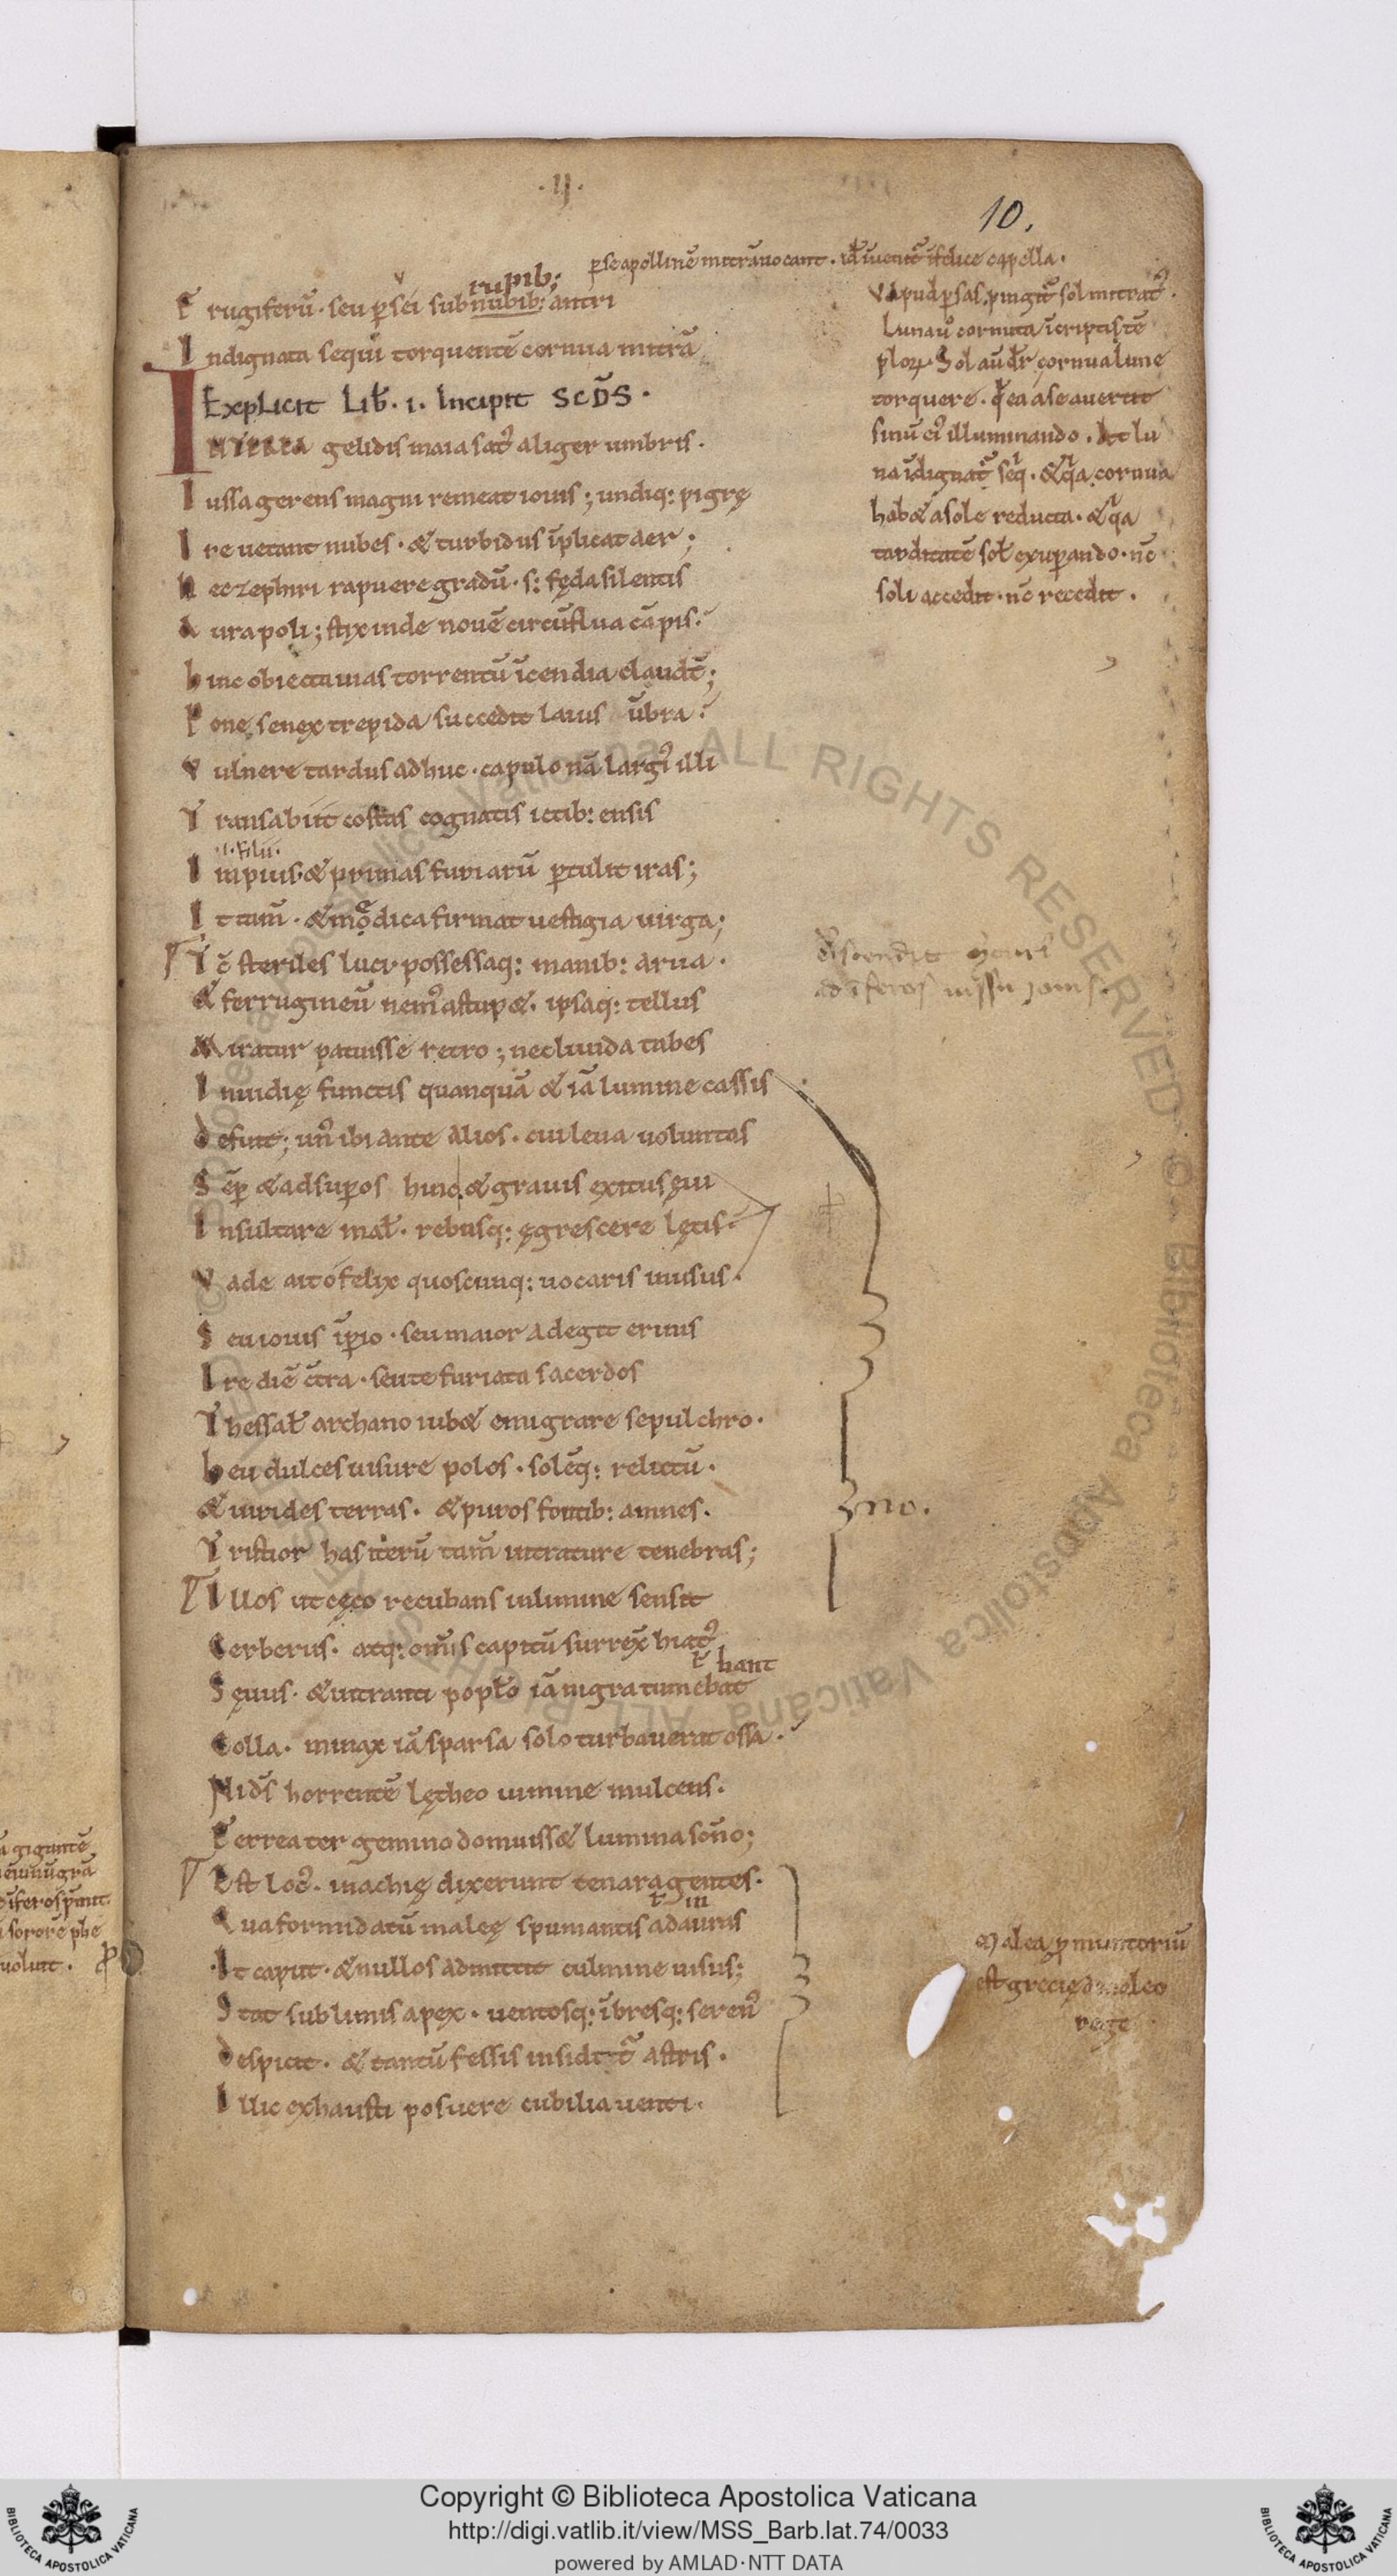 .IJ.
10.
ꝑse apollinē mitrā uocant. id̄ inuenit᷑ ī felice capella.
rupib;
F rugiferū. seu ꝑsei sub nubib: antri
I ndignata sequi torquentē cornua mitrā
Explicit Lib̄. i. Incipit SCD̄S.
INTEREA gelidis maia satꝰ aliger umbris.
I ussa gerens magni remeat iouis; undiq: pigrę
I re uetant nubes. & turbidus īplicat aer;
N ec zephiri rapuere gradū. s: fęda silentis
A ura poli; stix inde nouē circūflua cāpis.
h inc obiecta uias torrentū īcendia claudt̄;
P one senex trepida succedit laius ūbra.
V ulnere tardus adhuc. capulo nā largiꝰ illi
T ransabiit costas cognatis ictib: ensis
.i. filii.
I mpius. & primas furiarū ꝑtulit iras;
I t tam̄. & mędica firmat uestigia uirga;
T c̄ steriles luci possessaq: manib: arua.
& ferrugineū nemꝰ astup&. ipsaq: tellus
M iratur patuisse retro; nec liuida tabes
I nuidię functis quanquā & iā lumine cassis
D efuit; unꝰ ibi ante alios. cui leua uoluntas
S ēꝑ & ad suꝑos hinc & grauis exitus ęui
I nsultare mal̄. rebusq: ęgrescere lętis.
V ade ait o felix quoscunq: uocaris in usus.
S eu iouis īꝑio. seu maior adegit erinis
I re diē c̄tra. seu te furiata sacerdos
T hessal̄ archano iub& emigrare sepulchro.
h eu dulces uisure polos. solēq: relictū.
& uirides terras. & puros fontib: amnes.
T ristior has iterū tam̄ intrature tenebras;
I llos ut cęco recubans in limine sensit
C erberus. atq: om̄s capitū surrex̄ hiatꝰ
ł bant
S ęuus. & intranti popl̄o iā nigra tumebat
C olla. minax iā sparsa solo turbauerat ossa.
Ni dс̄ horrentē lętheo uimine mulcens.
F errea tergemino domuiss& lumina som̄o;
E st locꝰ. inachię dixerunt tenara gentes.
ł in
Q ua formidatū maleę spumantis ad auras
I t caput. & nullos admittit culmine uisus;
S tat sublimis apex. uentosq: ībresq: serenꝰ
D espicit. & tantū fessis insidit᷑ astris.
I llic exhausti posuere cubilia uenti.
V apud ꝑsas pingit᷑ sol mitratꝰ.
Luna uꝰ cornuta
torquere. q̄ ea a se auertit
sinū eiꝰ illuminando. At lu
na īdignat᷑ seq. & qa cornua
hab& a sole reducta. & qa
tarditatē sol̄ exuꝑando. nc̄
soli accedit. nc̄ recedit.
discendit
ad īferos iussu iouis
no.
Malea ꝓmuntoriū
est grecię a maleo
rege